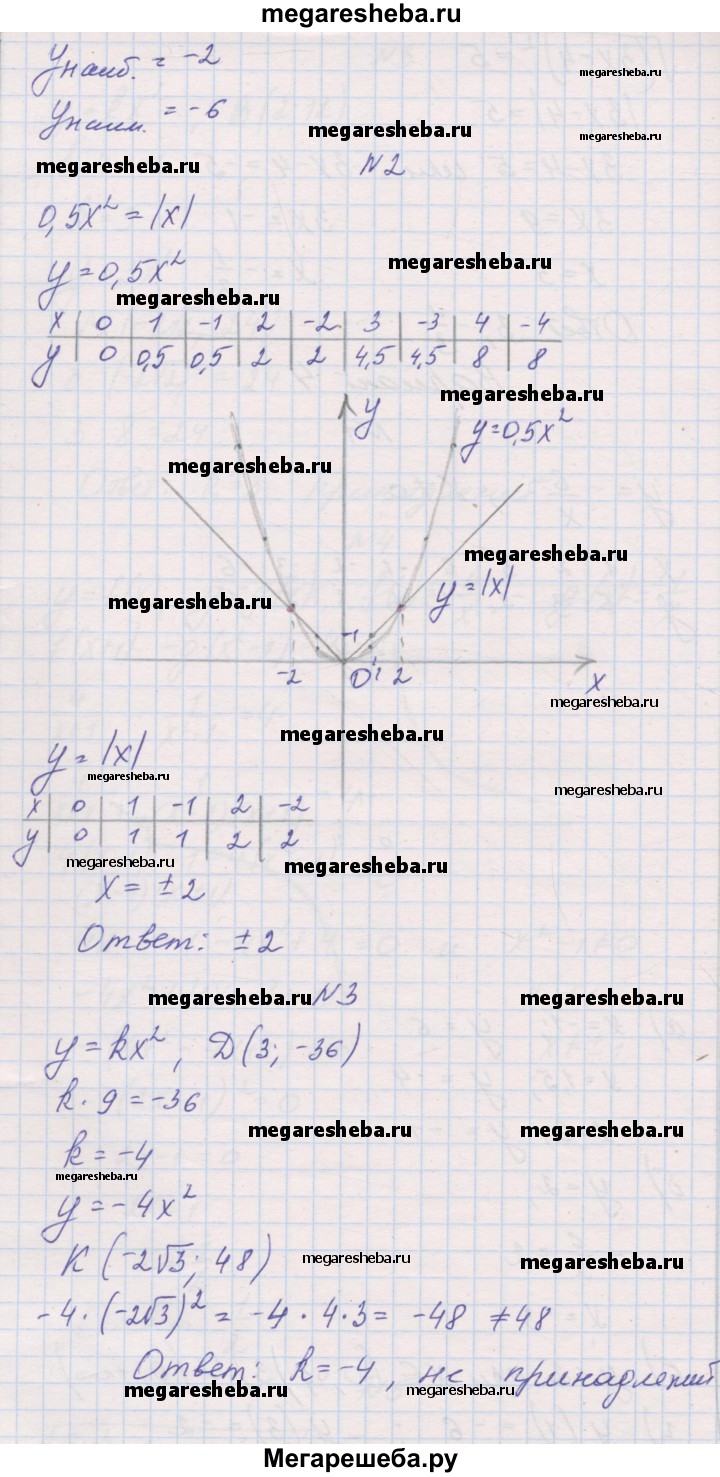 megaresheba.ru
yнаиб. = -2
megaresheba.ru
yнаим. = -6
megaresheba.ru
megaresheba.ru
megaresheba.ru
N2
0,5x² = |x|
y = 0,5x²
megaresheba.ru
megaresheba.ru
x 0 1 -1 2 -2 3 -3 4 -4
y 0 0,5 0,5 2 2 4,5 4,5 8 8
megaresheba.ru
y
y=0,5x²
megaresheba.ru
megaresheba.ru
y=|x|
megaresheba.ru
-1
-2 0 1 2 x
megaresheba.ru
megaresheba.ru
y = |x|
megaresheba.ru
x 0 1 -1 2 -2
y 0 1 1 2 2
megaresheba.ru
megaresheba.ru
x = ±2
Ответ: ±2
megaresheba.ru N3 megaresheba.ru
y = kx², D(3; -36)
k · 9 = -36
megaresheba.ru
megaresheba.ru
k = -4
megaresheba.ru
y = -4x²
K (-2√3; 48)
megaresheba.ru
megaresheba.ru
-4 · (-2√3)² = -4 · 4 · 3 = -48 ≠ 48
Ответ: k = -4, не принадлежит
megaresheba.ru
megaresheba.ru
megaresheba.ru
Мегарешеба.ру